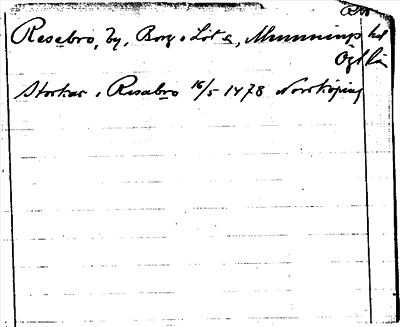 Resebro, by, Borg o Löt s, Memmings hd
Ög län
Storkar i Resebro 16/5 1478 Norrköping